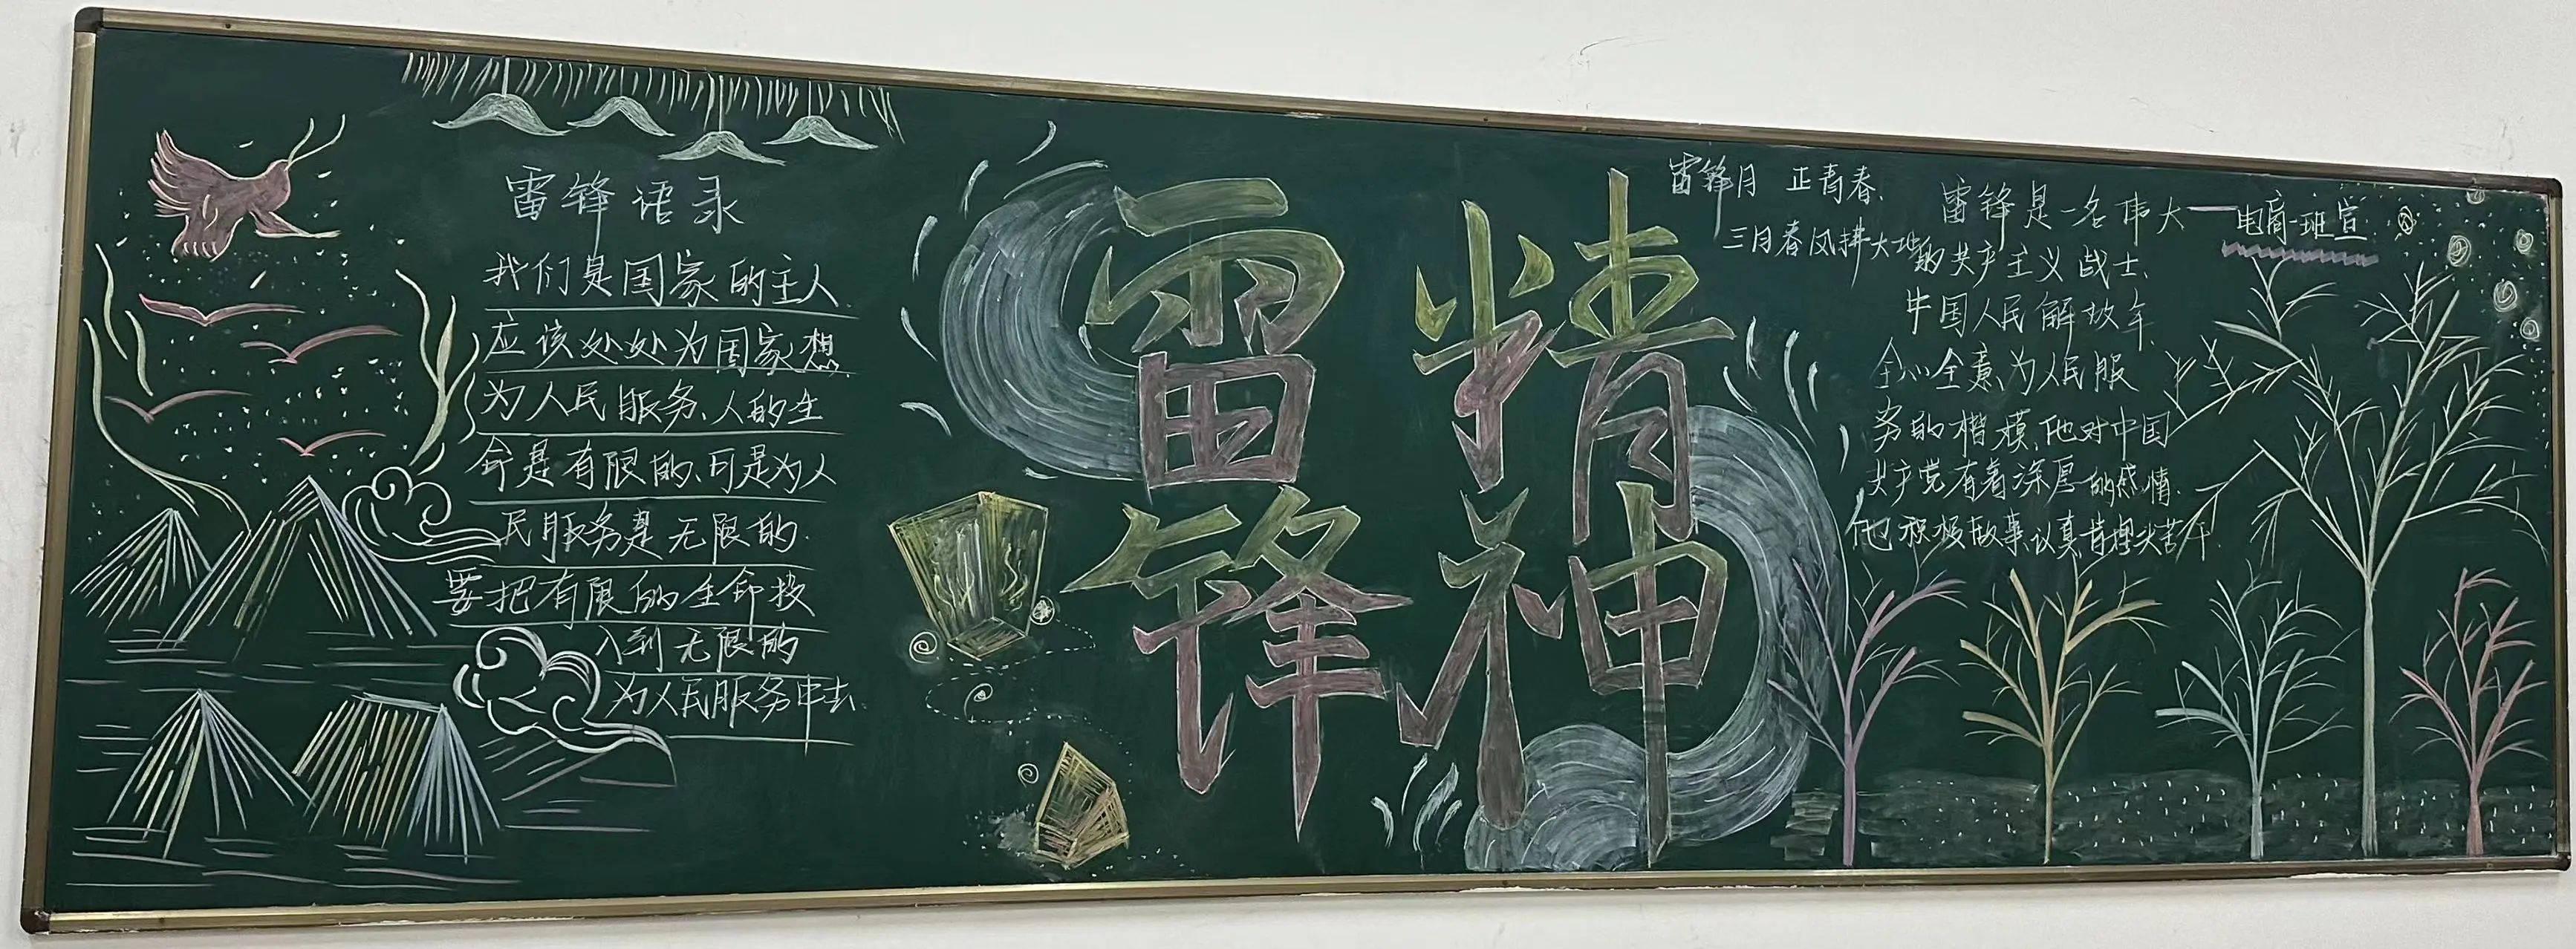 雷锋语录
我们是国家的主人
应该处处为国家想
为人民服务、人的生
命是有限的、可是为人
民服务是无限的
要把有限的生命投
入到无限的
为人民服务中去
雷锋
精神
雷锋月 正青春、
三月春风拂大地
雷锋是一名伟大
的共产主义战士、
中国人民解放军
全心全意为人民服
务的楷模、他对中国
共产党有着深厚的感情、
他积极故事、认真
苦干
电商一班宣